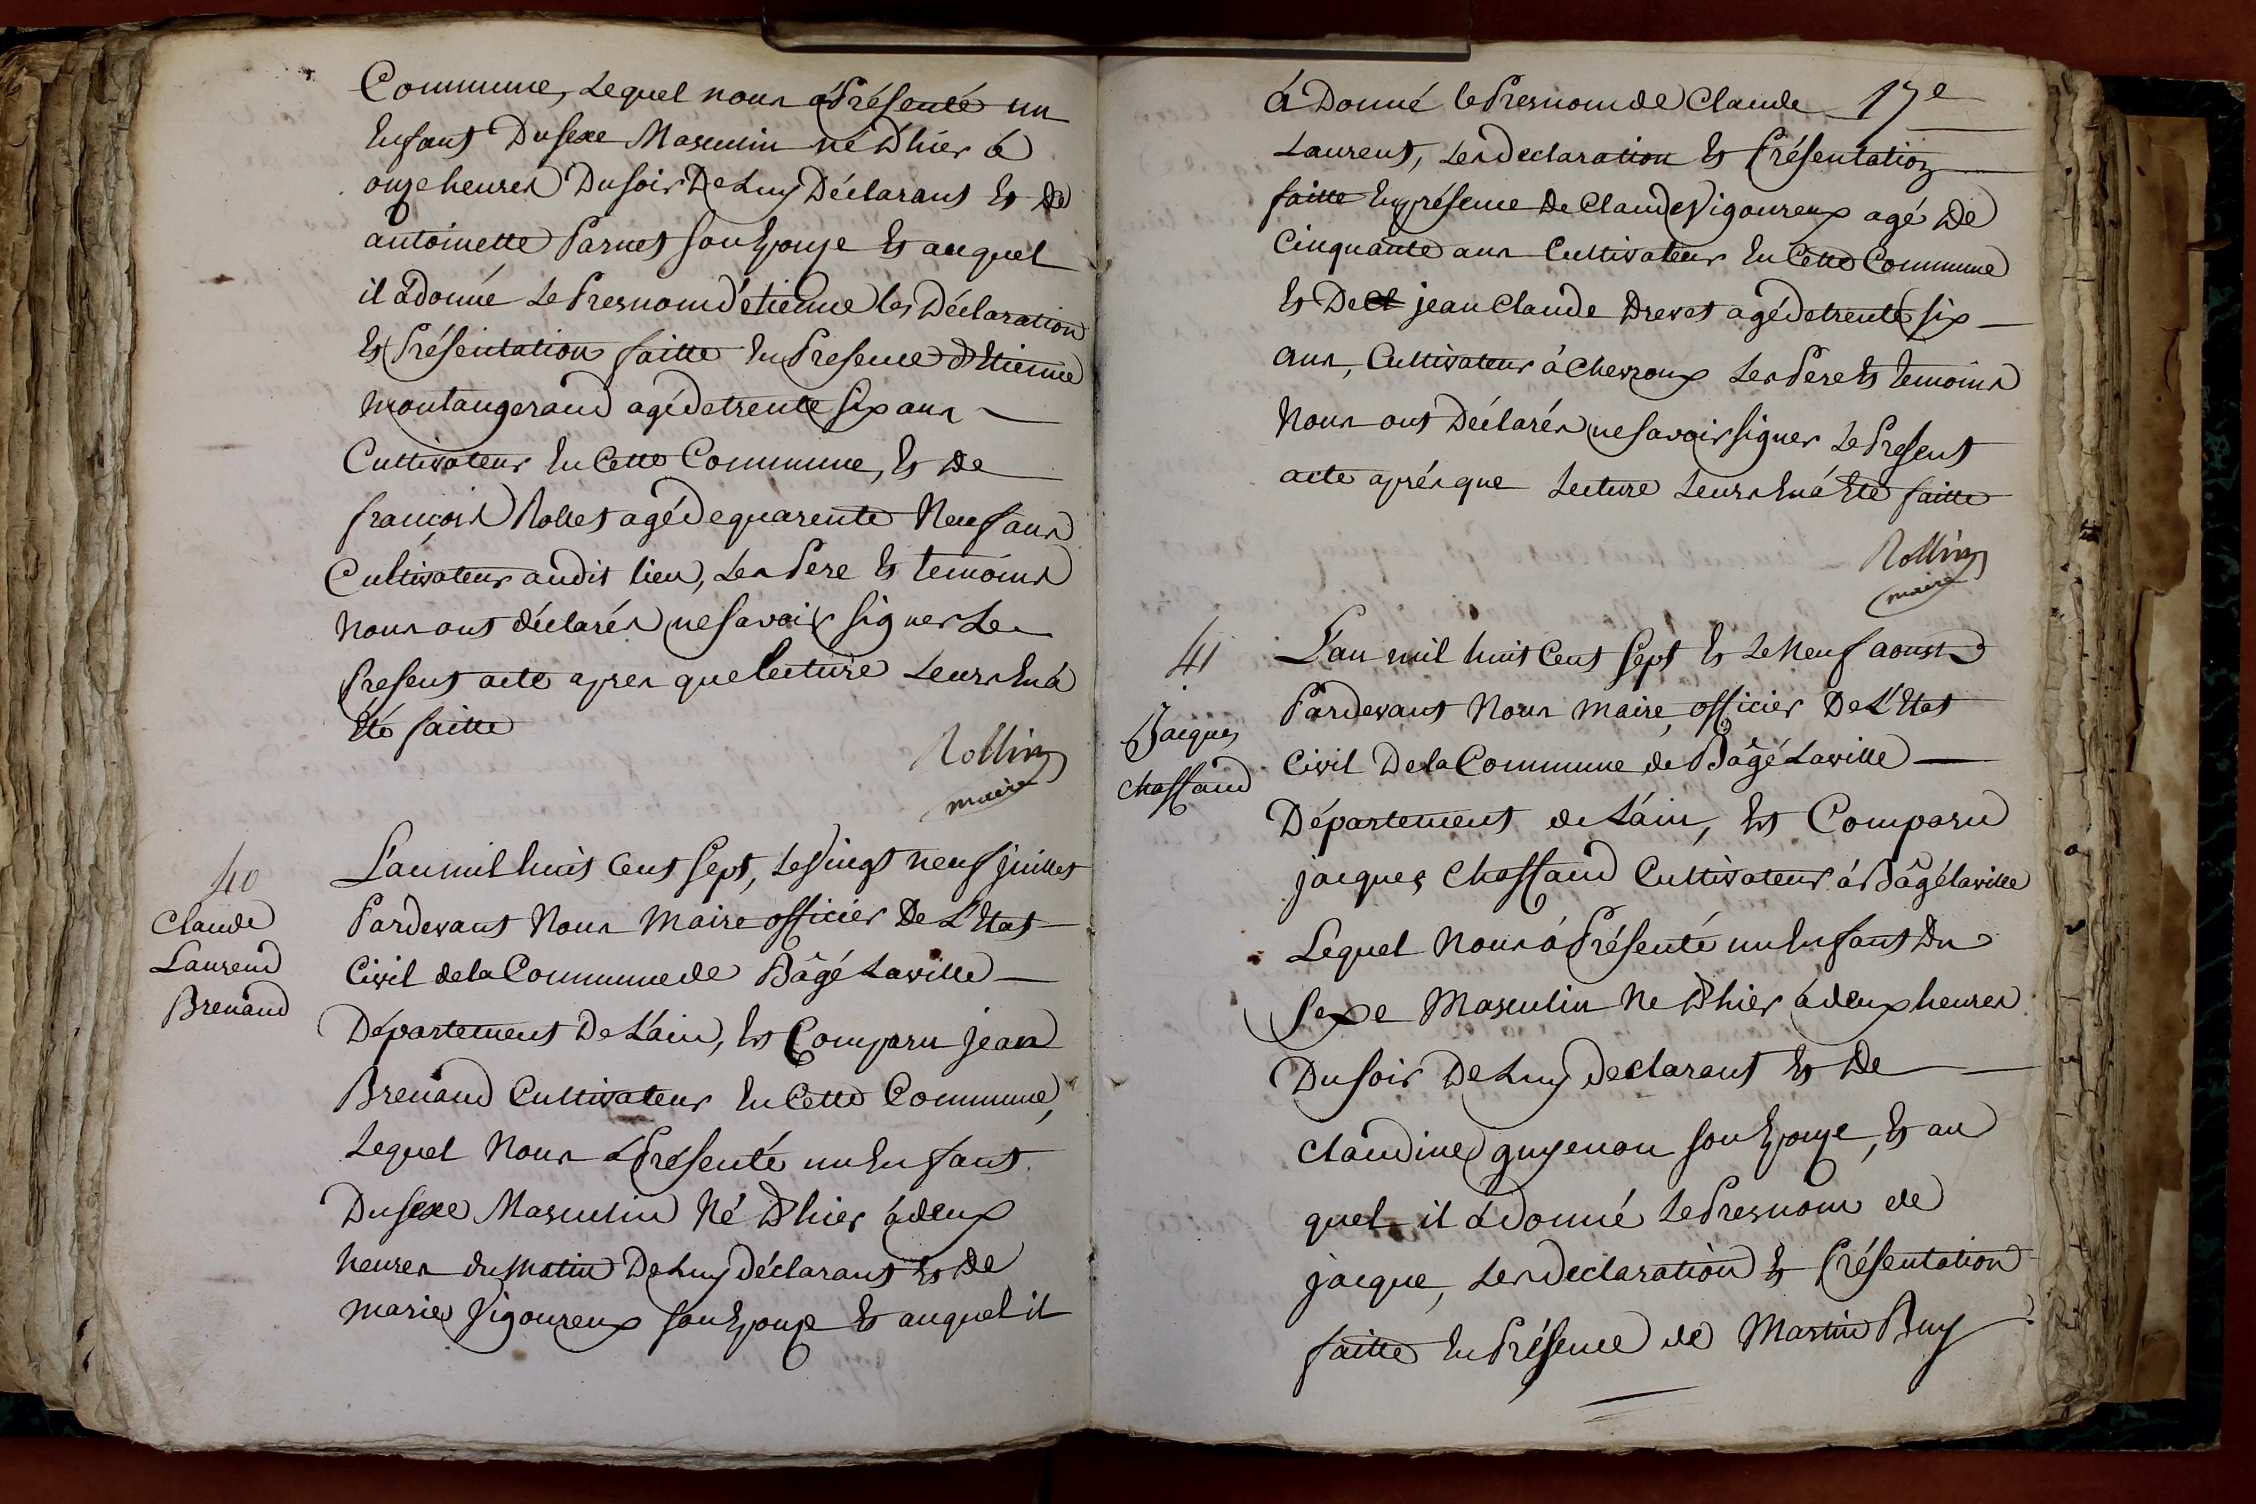 Commune, Lequel nous á Présenté un
Enfant Du sexe Masculin né D'hier á
onze heures Du soir De Luy Déclarant Et De
antoinette Parnet son Epouse Et auquel
il á donné Le Presnom d'étienne les Déclaration
Et Présentation faitte En Presence d'Etienne
Montangerand agé de trente Six ans
Cultivateur En Cette Commune, Et De
françois Rollet agé de quarente Neuf ans
Cultivateur audit lieu, Les Pere Et temoins
Nous ont déclarés ne savoir signer Le
Present acte apres que lecture Leurs En á
Eté faitte
Rollin
maire
40
Claude
Laurend
Brenand
L'an mil huit Cent Sept, Le Vingt neuf juillet
Pardevant Nous Maire officier De L'Etat
Civil de la Commune de Bâgé Laville
Département De L'ain, Est Comparu jean
Brenand Cultivateur En Cette Commune,
Lequel Nous á Présenté un Enfant
Du sexe Masculin Né D'hier á deux
heures du Matin De Luy déclarant Et De
marie Vigoureux son Epouse Et auquel il
á Donné le Presnom de Claude 17e
Laurent, Les declaration Et Présentation
faitte En présence De Claude Vigoureux agé De
Cinquante ans Cultivateur En Cette Commune
Et De Cl jean Claude Drevet agé de trente six
ans, Cultivateur á Chevroux Les Pere Et temoins
Nous ont Déclarés ne savoir signer Le Present
acte aprés que Lecture Leurs En á Eté faitte
Rollin
maire
41
Jacques
Chaffaud
L'an mil huit Cent Sept Et Le Neuf aoust
Pardevant Nous Maire officier De L'Etat
Civil De la Commune de Bâgé Laville
Département de L'ain, Est Comparu
jacques Chaffaud Cultivateur á Bâgé laville
Lequel Nous á Présenté un Enfant Du
Sexe Masculin Né D'hier á deux heures
Du soir De Luy declarant Et De
Claudine guyenon son Epouse, Et au
quel il á donné Le Presnom de
jacque, Les declaration Et Présentation
faitte En Présence de Martin Buy